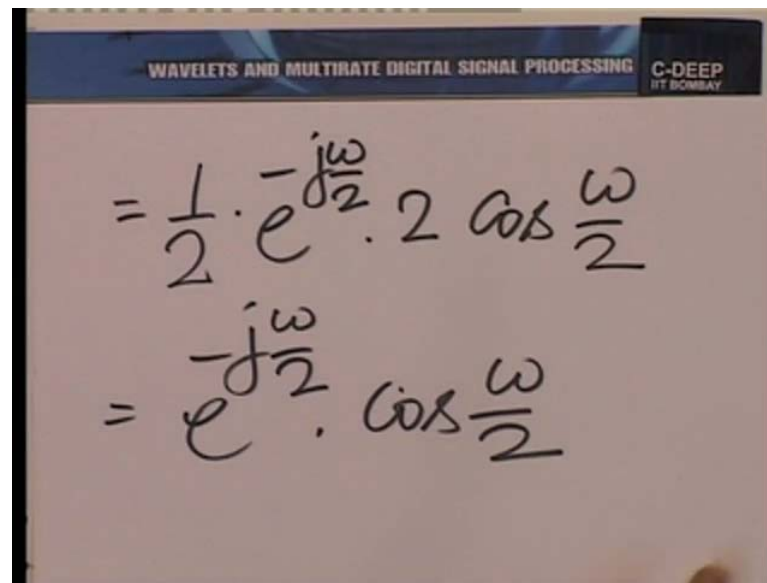 WAVELETS AND MULTIRATE DIGITAL SIGNAL PROCESSING
C-DEEP
IIT BOMBAY
= 1/2 · e^(-jω/2) · 2 cos ω/2
= e^(-jω/2) · cos ω/2